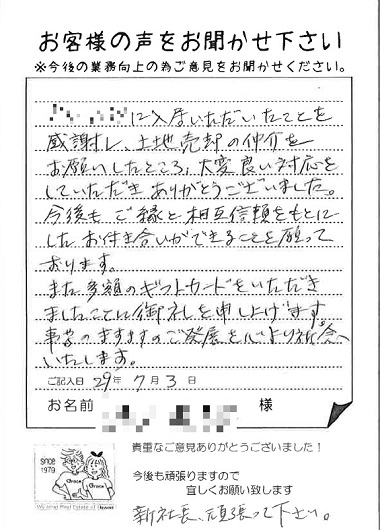 お客様の声をお聞かせ下さい
※今後の業務向上の為ご意見をお聞かせください。
に入居いただいたことを
感謝し、土地売却の仲介を
お願いしたところ、大変良い対応を
していただき ありがとうございました。
今後も ご縁と相互信頼をもとに
したお付き合いができることを願って
おります。
また多額のギフトカードをいただき
ましたことに御礼を申し上げます。
ますますのご発展を心より祈念
いたします。
ご記入日 29年 7月 3日
お名前 様
貴重なご意見ありがとうございました！
since
1979
今後も頑張りますので
宜しくお願い致します
Grace
Grace
新社長、頑張って下さい。